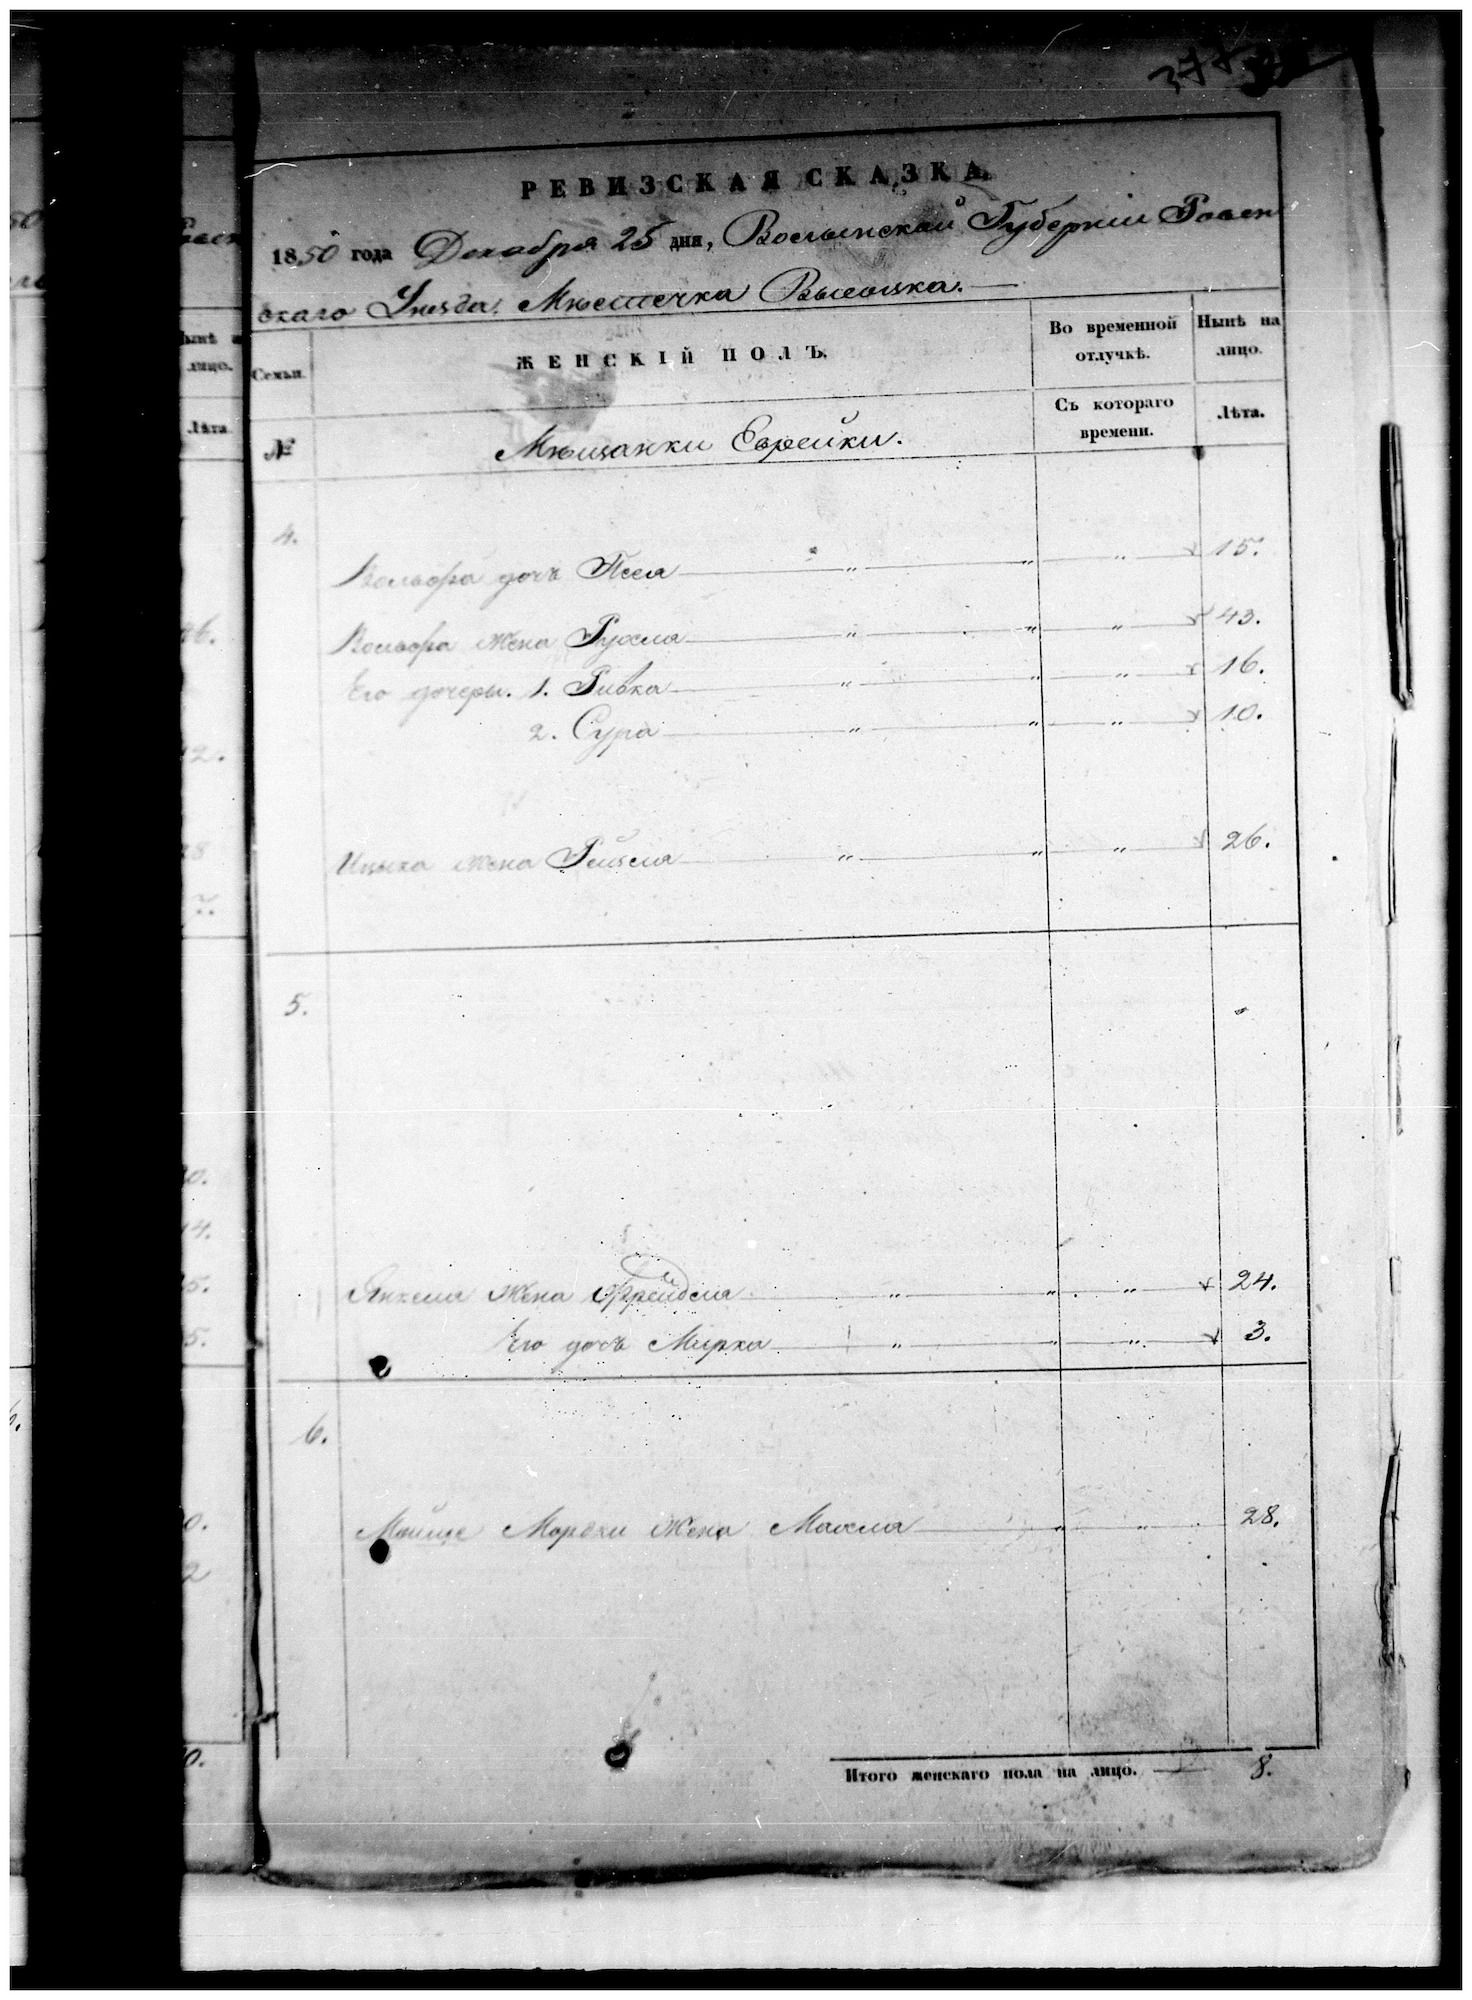 377
РЕВИЗСКАЯ СКАЗКА.
1850 года Декабря 25 дня, Волынской Губерніи Ровен
скаго Уѣзда. Мѣстечка Высоцка.
Семьи.
ЖЕНСКІЙ ПОЛЪ.
Во временной отлучкѣ.
Нынѣ на лицо.
№
Мѣщанки Еврейки.
Съ котораго времени.
Лѣта.
4.
Вольфа дочь Песя " " " 15.
Вольфа жена Рухля " " " 43.
Его дочеры. 1. Ривка " " " 16.
2. Сура " " " 10.
Ицыка жена Рейзля " " " 26.
5.
Янкеля жена Фрейдля " " " 24.
Его дочь Мирка " " " 3.
6.
Мойше Мордки жена Махля " " 28.
Итого женскаго пола на лицо. 8.